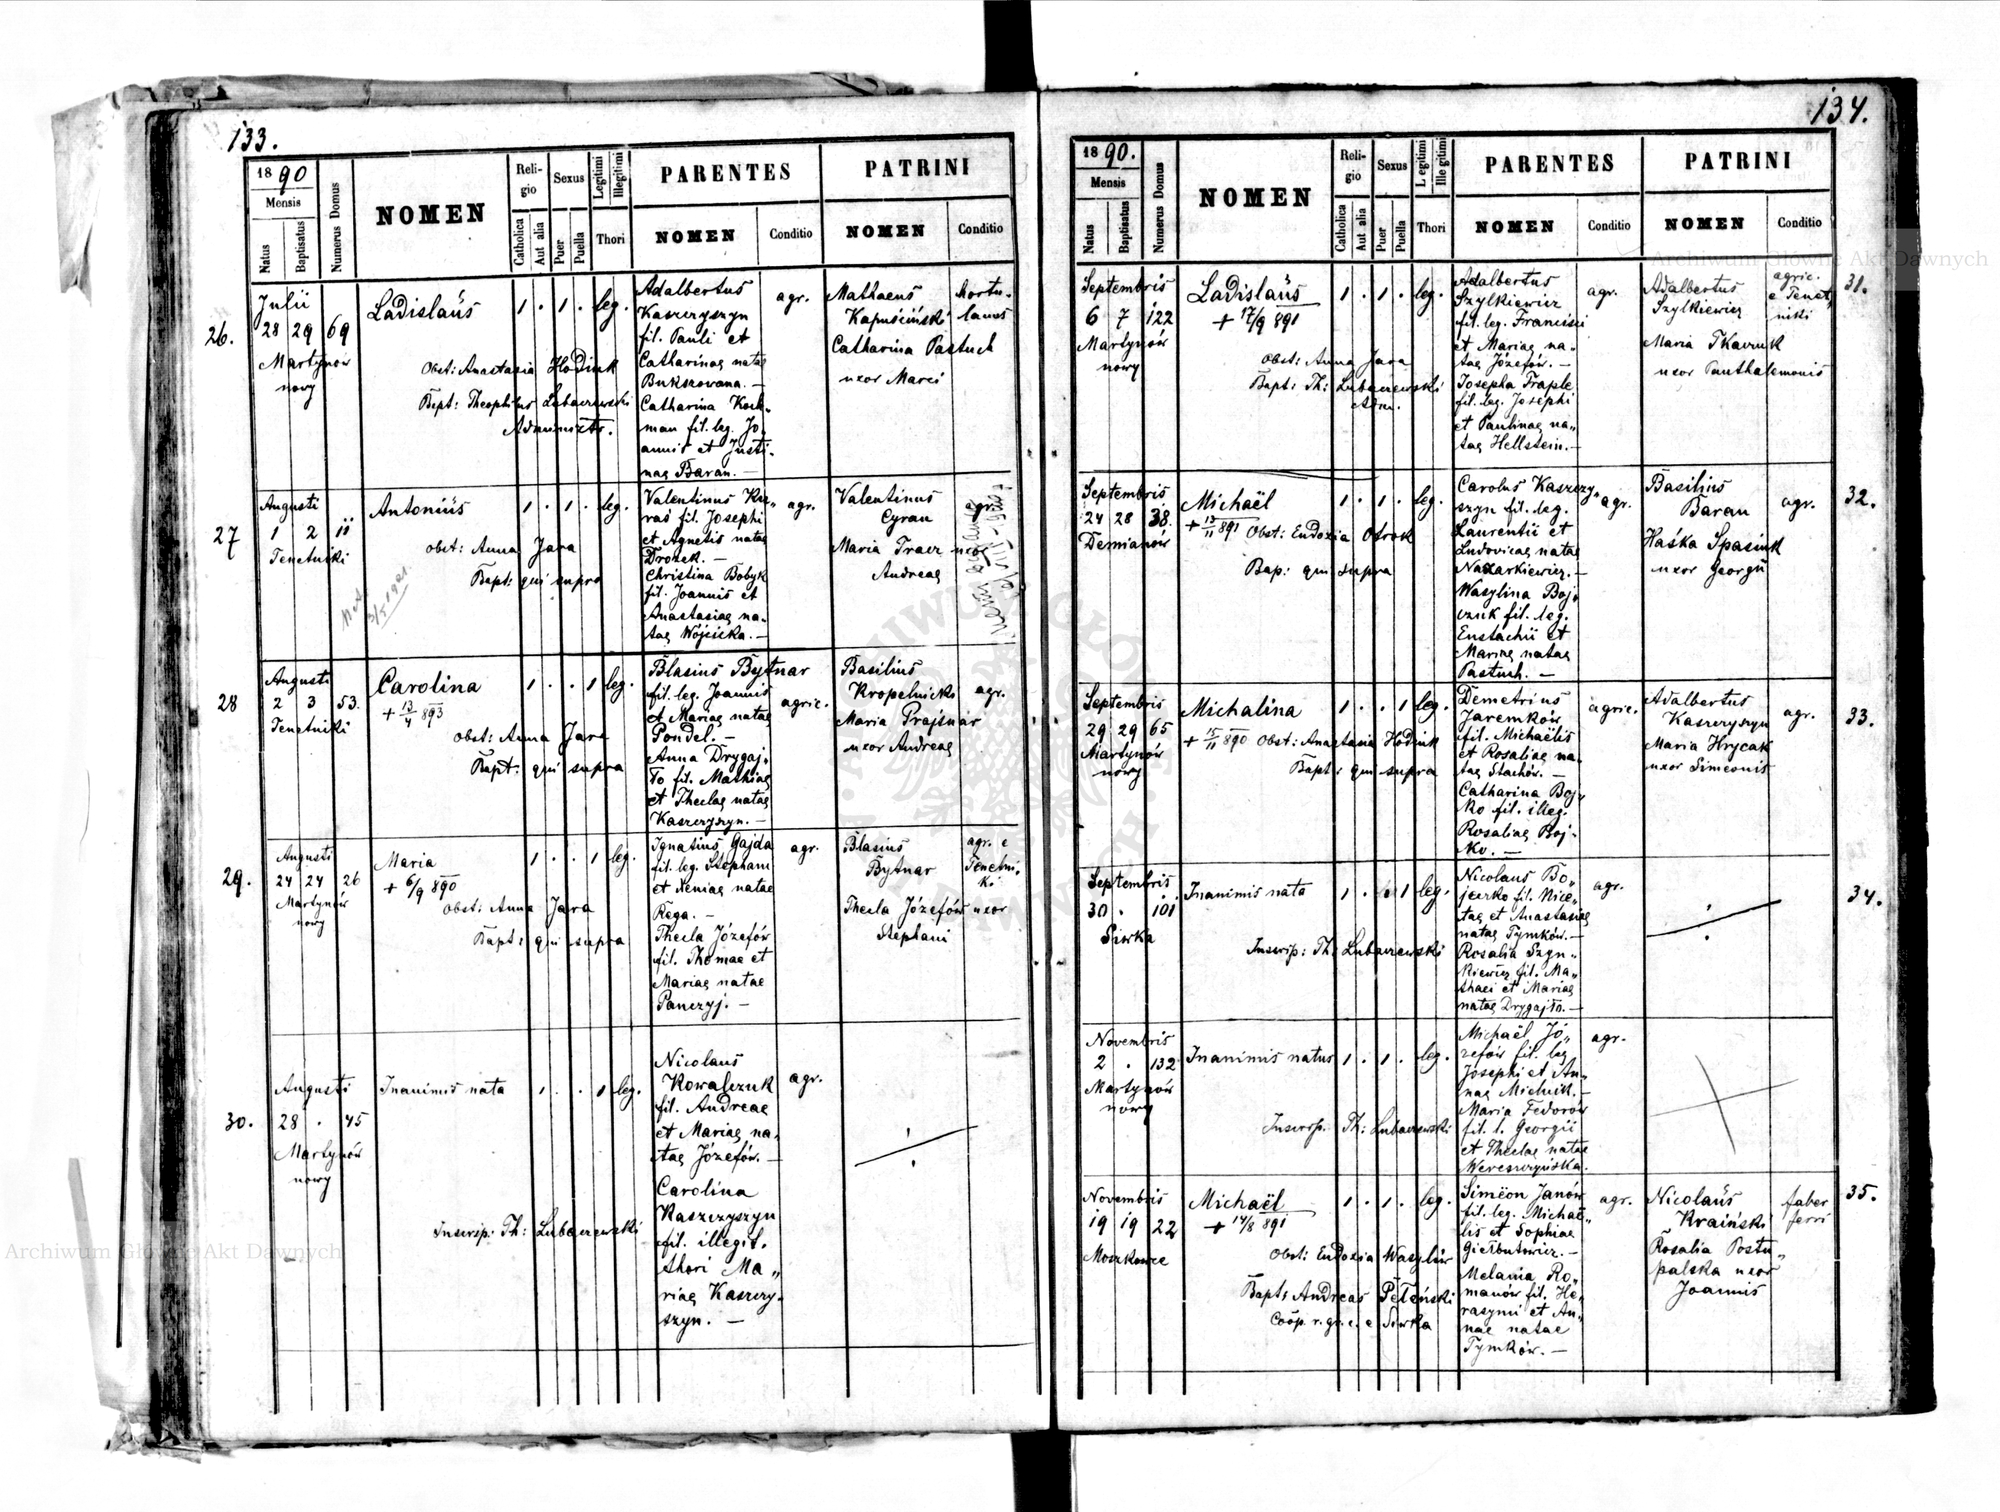 133.
18 90
Mensis
Natus
Baptisatus
Numerus Domus
NOMEN
Reli-
gio
Catholica
Aut alia
Sexus
Puer
Puella
Legitimi
Illegitimi
Thori
PARENTES
NOMEN
Conditio
PATRINI
NOMEN
Conditio
26.
Julii
28 29 69
Martynów
nowy
Ladislaüs
1 . 1 . leg.
Obst: Anastasia Hodiuk
Bapt: Theophilus Lubaczewski
Administr.
Adalbertus
Kaszczyszyn
fil. Pauli et
Catharinae natae
Bukszowana. —
Catharina Koch-
man fil. leg. Jo-
annis et Justi-
nae Baran. —
agr.
Mathaeus
Kapuściński
Catharina Pastuch
uxor Marci
hortu-
lanus
27
Augusti
1 2 11
Tenetniki
Antoniüs
1 . 1 . leg.
Obst: Anna Jara
Bapt: qui supra
Valentinus Ku-
raś fil. Josephi
et Agnetis natae
Drozek. —
Christina Bobyk
fil. Joannis et
Anastasiae na-
tae Wójcicka. —
agr.
Valentinus
Cyran
Maria Tracz uxor
Andreae
agr.
28
Augusti
2 3 53.
Tenetniki
Carolina
+ 13/4 893
1 . . 1 leg.
Obst: Anna Jara
Bapt: qui supra
Blasius Bytnar
fil. leg. Joannis
et Mariae natae
Pondel. —
Anna Drygaj-
ło fil. Mathiae
et Theclae natae
Kaszczyszyn. —
agric.
Basilius
Kropelnicki
Maria Prajsnar
uxor Andreae
agr.
29.
Augusti
24 24 26
Martynów
nowy
Maria
+ 6/9 890
1 . . 1 leg.
Obst: Anna Jara
Bapt: qui supra
Ignatius Gajda
fil. leg. Stephani
et Xeniae natae
Rega. —
Thecla Józefów
fil. Thomae et
Mariae natae
Panczyj. —
agr.
Blasius
Bytnar
Thecla Józefów uxor
Stephani
agr. e
Tenetni-
ki
30.
Augusti
28 . 45
Martynów
nowy
Inanimis nata
1 . . 1 leg.
Inscrip: Th: Lubaczewski
Nicolaus
Kowalczuk
fil. Andreae
et Mariae na-
tae Józefów. —
Carolina
Kaszczyszyn
fil. illegit.
thori Ma-
riae Kaszczy-
szyn. —
agr.
134.
18 90.
Mensis
Natus
Baptisatus
Numerus Domus
NOMEN
Reli-
gio
Catholica
Aut alia
Sexus
Puer
Puella
Legitimi
Illegitimi
Thori
PARENTES
NOMEN
Conditio
PATRINI
NOMEN
Conditio
Septembris
6 7 122
Martynów
nowy
Ladislaüs
+ 17/9 891
1 . 1 . leg.
Obst: Anna Jara
Bapt: Th: Lubaczewski
Adm.
Adalbertus
Szylkiewicz
fil. leg. Francisci
et Mariae na-
tae Józefów. —
Josepha Fraple
fil. leg. Josephi
et Paulinae na-
tae Hellstein. —
agr.
Adalbertus
Szylkiewicz
Maria Tkaczuk
uxor Panthalemonis
agric.
e Tenet-
niki
31.
Septembris
24 28 38.
Demianów
Michaël
+ 13/11 891
1 . 1 . leg.
Obst: Eudoxia Otrok
Bap: qui supra
Carolus Kaszczy-
szyn fil. leg.
Laurentii et
Ludovicae natae
Nazarkiewicz. —
Wasylina Boj-
czuk fil. leg.
Eustachii et
Mariae natae
Pastuch. —
agr.
Basilius
Baran
Haśka Spasiuk
uxor Georgii
agr.
32.
Septembris
29 29 65
Martynów
nowy
Michalina
+ 15/11 890
1 . . 1 leg.
Obst: Anastasia Hodiuk
Bapt: qui supra
Demetrius
Jaremków
fil. Michaëlis
et Rosaliae na-
tae Stachów. —
Catharina Boj-
ko fil. illeg.
Rosaliae Boj-
ko. —
agric.
Adalbertus
Kaszczyszyn
Maria Hrycak
uxor Simeonis
agr.
33.
Septembris
30 . 101
Siwka
Inanimis nata
1 . . 1 leg.
Inscrip: Th: Lubaczewski
Nicolaus Bo-
jeczko fil. Nice-
tae et Anastasiae
natae Tymków. —
Rosalia Szyn-
kiewicz fil. Ma-
thaei et Mariae
natae Drygajło. —
agr.
34.
Novembris
2 . 132
Martynów
nowy
Inanimis natus
1 . 1 . leg.
Inscrip. Th: Lubaczewski
Michaël Jó-
zefów fil. leg
Josephi et An-
nae Michnik. —
Maria Fedorów
fil. l. Georgii
et Theclae natae
Wereszczyńska.
agr.
Novembris
19 19 22
Moszkowce
Michaël
+ 14/8 891
1 . 1 . leg.
Obst: Eudoxia Wasylów
Bapt: Andreas Pełeński
Coop. r. gr. c. e Siwka
Simëon Janów
fil. leg. Michaë-
lis et Sophiae
Giełbutowicz. —
Melania Ro-
manów fil. He-
rasymi et An-
nae natae
Tymków. —
agr.
Nicolaüs
Kraiński
Rosalia Postu-
palska uxor
Joannis
faber
ferri
35.
Archiwum Główne Akt Dawnych
Archiwum Główne Akt Dawnych